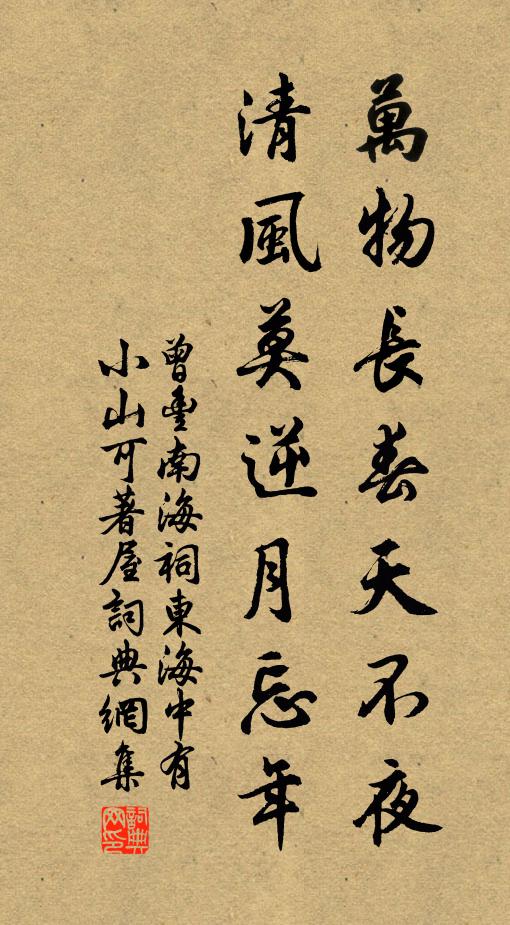 萬物長春天不夜
清風莫逆月忘年
曾豐南海祠東海中有
小山可著屋詞典網集
詞典網印